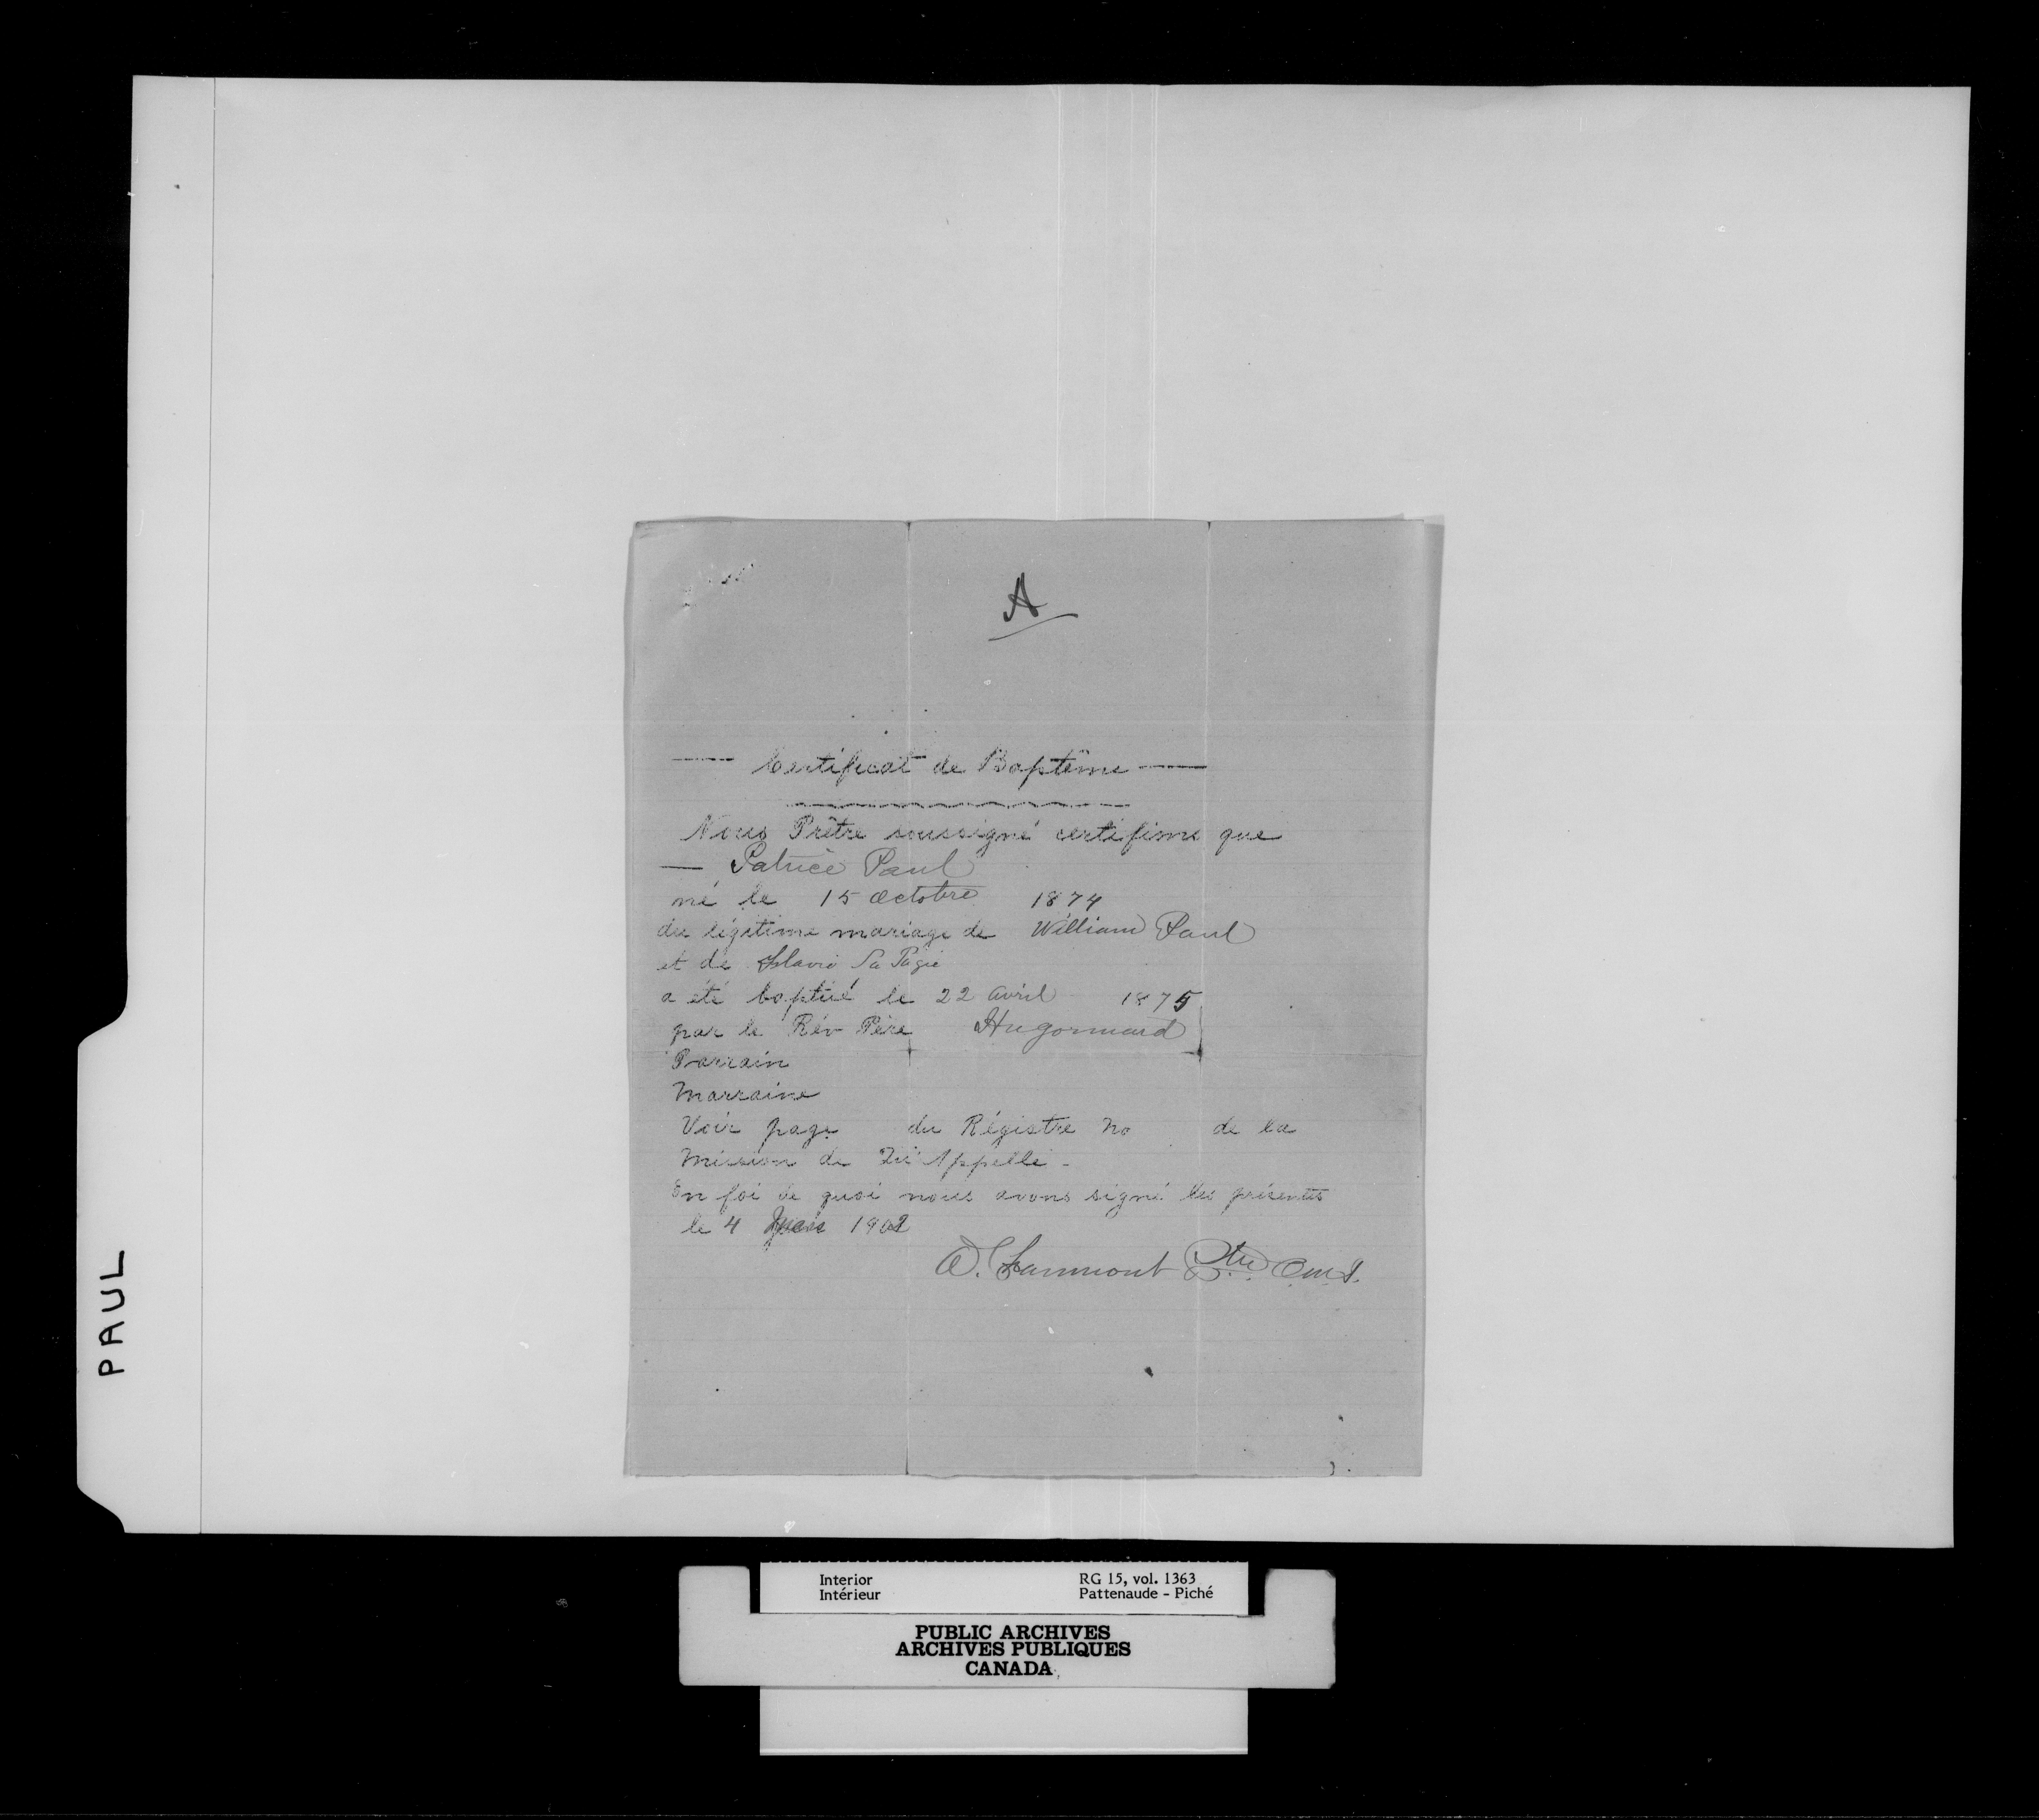 A
Certificat de Baptême
Nous Prêtre soussigné certifions que
Patrice Paul
né le 15 Octobre 1874
du légitime mariage de William Paul
et de Flavie La Pagie
a été baptisé le 22 avril 1875
par le Rév Père Hugonnard
Parrain
Marraine
Voir page du Régistre No de la
Mission de Qu'Appelle -
En foi de quoi nous avons signé les présentes
le 4 1902
Ptre O.M.I.
PAUL
Interior RG 15, vol. 1363
Intérieur Pattenaude - Piché
PUBLIC ARCHIVES
ARCHIVES PUBLIQUES
CANADA